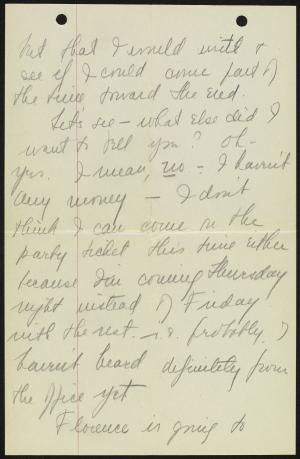 but that I would write &
see if I could come part of
the time toward the end.
Let's see – what else did I
want to tell you? Oh –
yes. I mean, no – I haven't
any money – I don't
think I can come on the
party ticket this time either
because I'm coming Thursday
night instead of Friday
with the rest. – i.e. probably. I
haven't heard definitely from
the office yet
Florence is going to